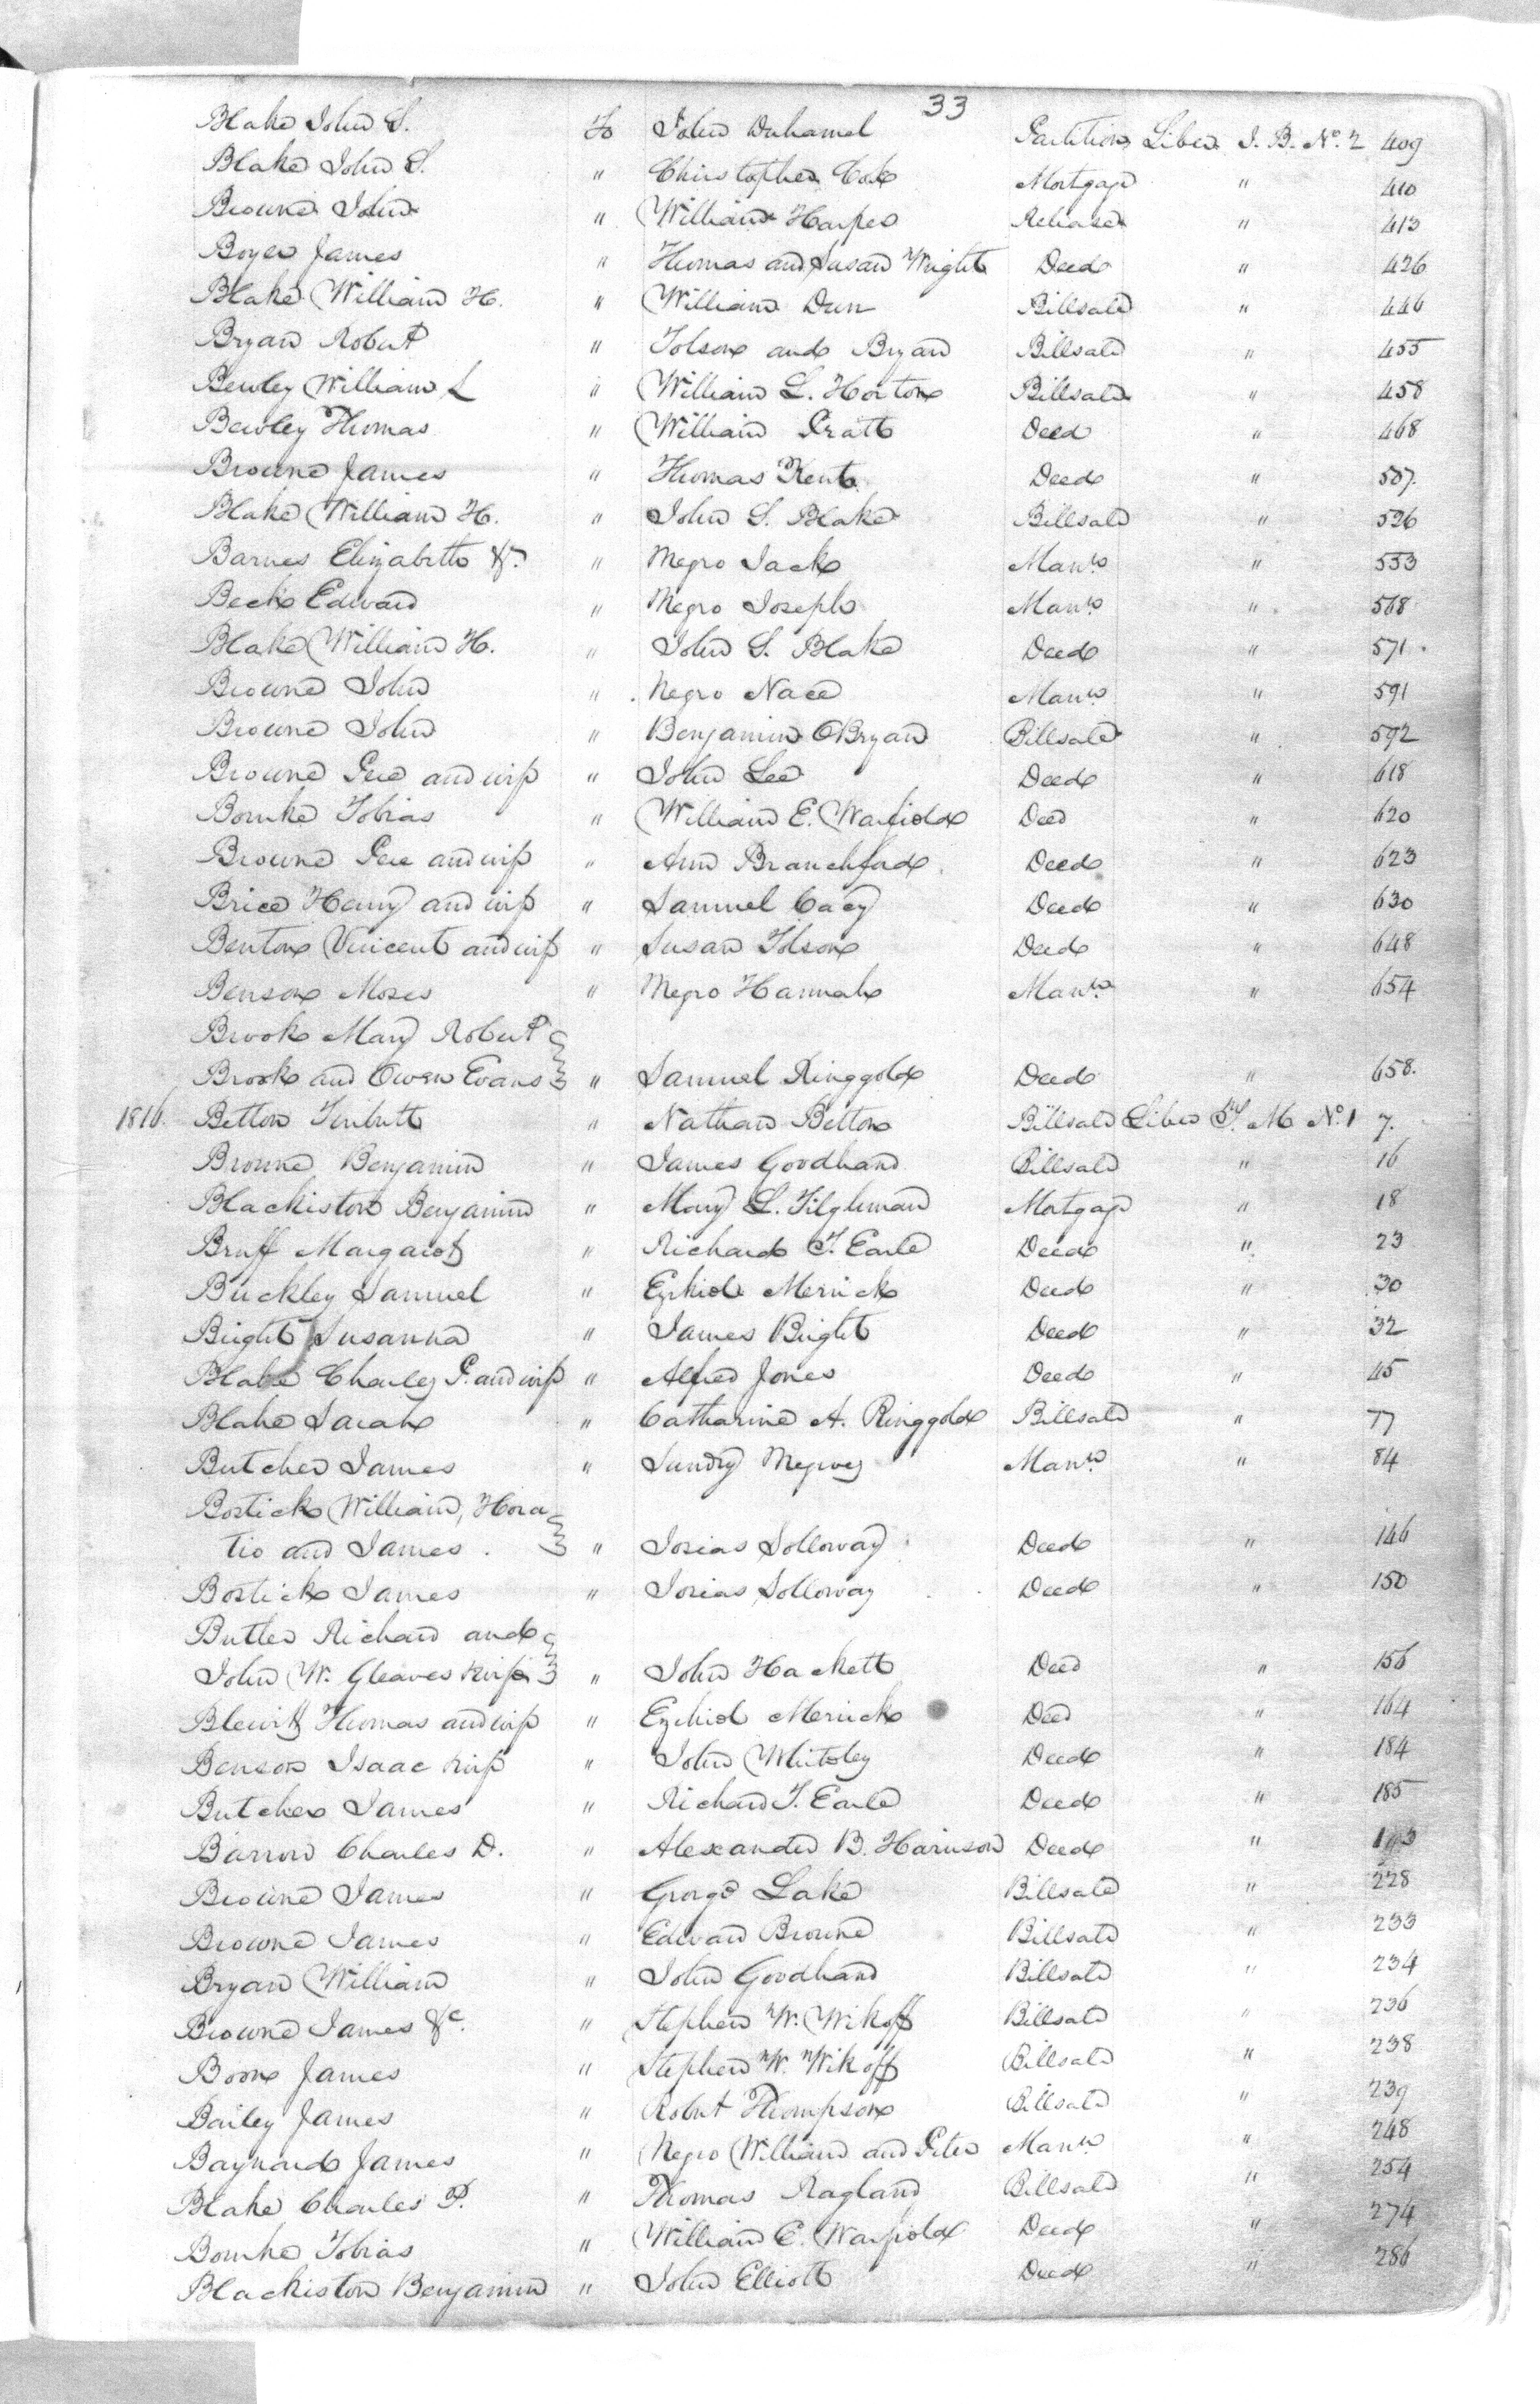 33
Blake John S. To John Duhamel Partition Liber I. B. No. 2 409
Blake John S. " Christopher Cox Mortgage " 410
Browne John " William Harper Release " 413
Boyer James " Thomas and Susan Wright Deed " 426
Blake William H. " William Dun Billsale " 446
Bryan Robert " Tolson and Bryan Billsale " 455
Bewley William L " William L. Horton Billsale " 458
Bewley Thomas " William Pratt Deed " 468
Browne James " Thomas Kent Deed " 507.
Blake William H. " John S. Blake Billsale " 526
Barnes Elizabeth &c " Negro Jack Mann " 553
Beck Edward " Negro Joseph Mann " 568
Blake William H. " John S. Blake Deed " 571
Browne John " Negro Nace Mann " 591
Browne John " Benjamin OBryan Billsale " 592
Browne Pere and wife " John Lee Deed " 618
Bourke Tobias " William E. Warfield Deed " 620
Browne Pere and wife " Ann Branchford Deed " 623
Brice Henry and wife " Samuel Cacy Deed " 630
Benton Vincent and wife " Susan Tolson Deed " 648
Benson Moses " Negro Hannah Mann " 654
Brook Mary Robert
Brook and Owen Evans " Samuel Ringgold Deed " 658.
1816. Betton Turbutt " Nathan Betton Billsale Liber T. M No. 1 7.
Browne Benjamin " James Goodhand Billsale " 16
Blackiston Benjamin " Mary L. Tilghman Mortgage " 18
Bruff Margaret " Richard T. Earle Deed " 23
Buckley Samuel " Ezekiel Merrick Deed " 30
Bright Susanna " James Bright Deed " 32
Blake Charles P. and wife " Alfred Jones Deed " 45
Blake Sarah " Catharine A. Ringgold Billsale " 77
Butcher James " Sundry Negroes Mann " 84
Bostick William, Hora
tio and James. " Josias Solloway Deed " 146
Bostick James " Josias Solloway Deed " 150
Butler Richard and
John W. Gleaves &wife " John Hackett Deed " 156
Blewitt Thomas and wife " Ezekiel Merrick Deed " 164
Benson Isaac &wife " John Whiteley Deed " 184
Butcher James " Richard T. Earle Deed " 185
Barrow Charles D. " Alexander B. Harrison Deed "
Browne James " George Lake Billsale " 228
Browne James " Edward Browne Billsale " 233
Bryan William " John Goodhand Billsale " 234
Browne James &c. " Stephen W. Wikoff Billsale " 236
Boon James " Stephen W. Wikoff Billsale " 238
Bailey James " Robert Thompson Billsale " 239
Baynard James " Negro William and Peter Mann " 248
Blake Charles P. " Thomas Ragland Billsale " 254
Bourke Tobias " William E. Warfield Deed " 274
Blackiston Benjamin " John Elliott Deed " 286